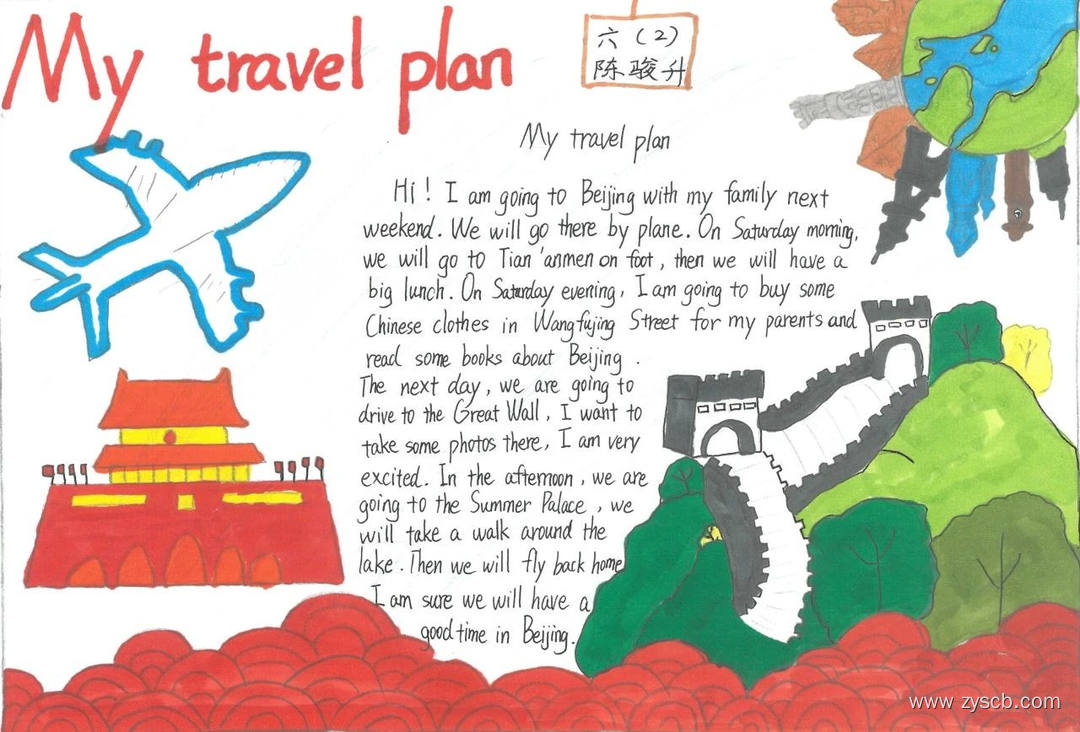 My travel plan
六（2）
陈骏升
My travel plan
Hi! I am going to Beijing with my family next
weekend. We will go there by plane. On Saturday morning,
we will go to Tian'anmen on foot, then we will have a
big lunch. On Saturday evening, I am going to buy some
Chinese clothes in Wangfujing Street for my parents and
read some books about Beijing.
The next day, we are going to
drive to the Great Wall, I want to
take some photos there, I am very
excited. In the afternoon, we are
going to the Summer Palace, we
will take a walk around the
lake. Then we will fly back home
I am sure we will have a
good time in Beijing.
www.zyscb.com